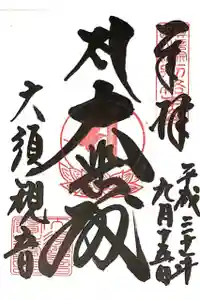 奉拝
平成三十年
九月十五日
大悲殿
大須観音